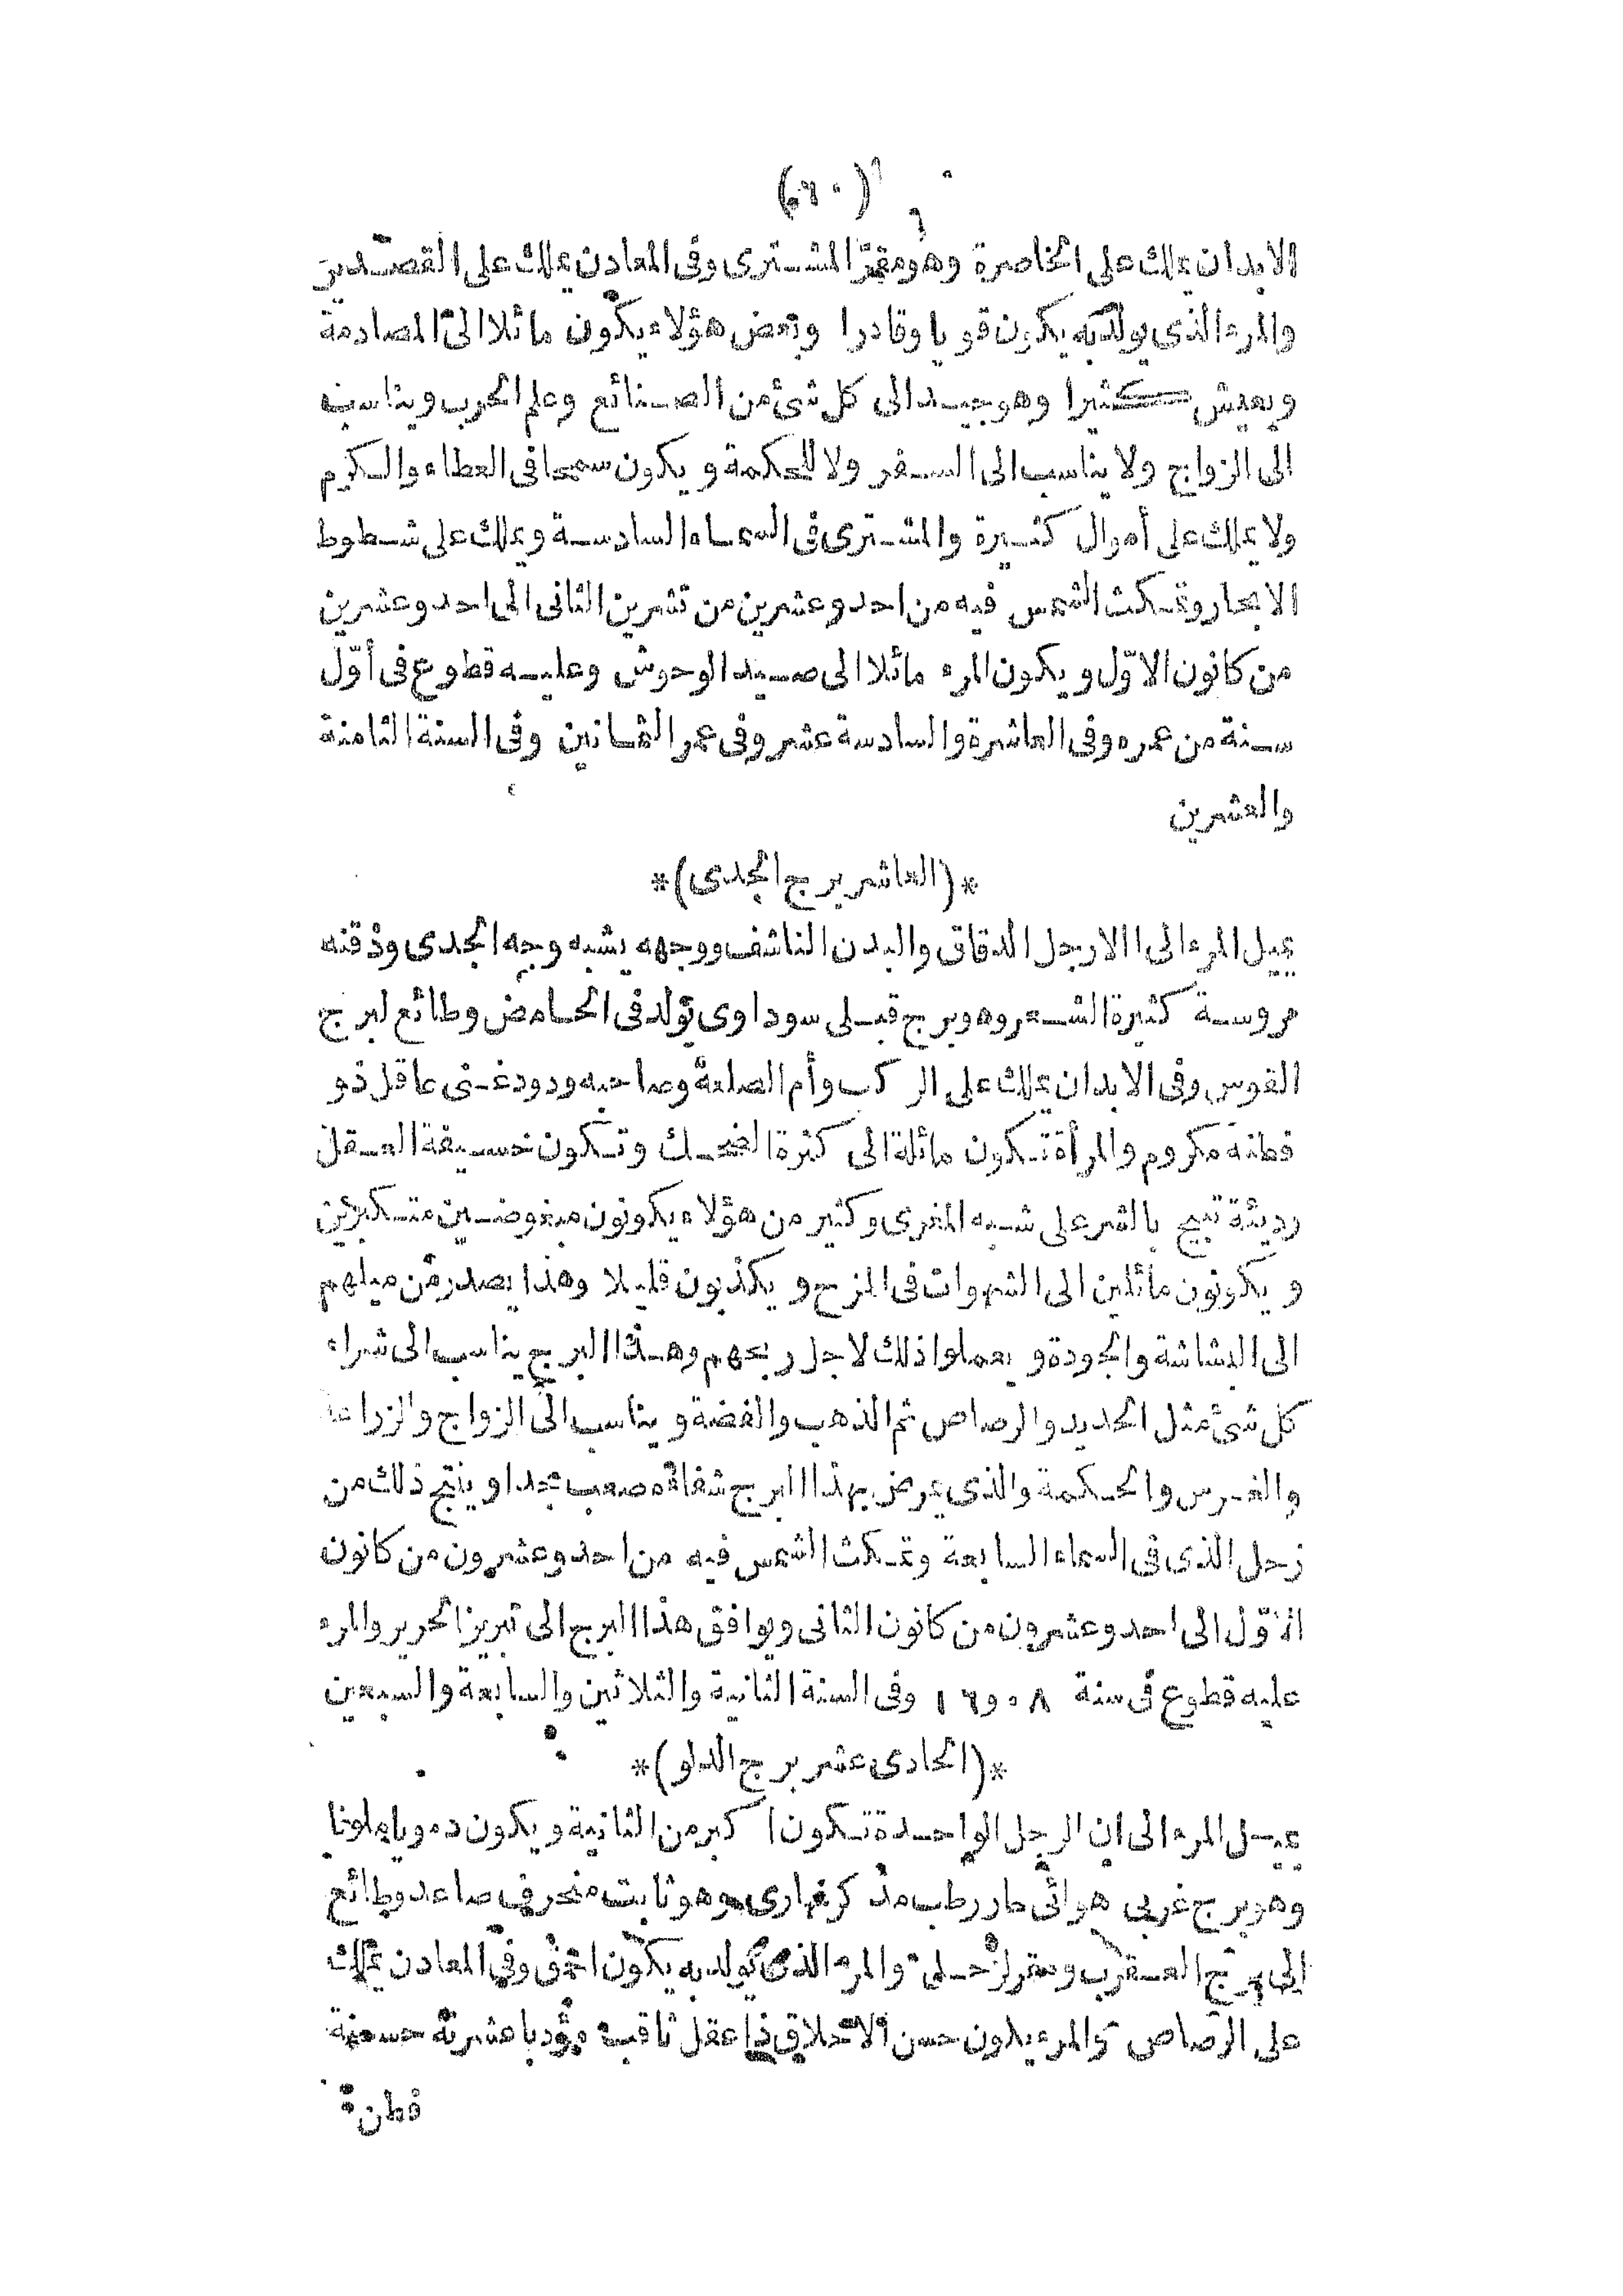 (٥٦٠)
الابدان يملك على الخاصرة وهو مقرّ المشترى وفى المعادن يملك على القصدير
والمرء الذى يولد به يكون قويا وقادرا وبعض هؤلاء يكون مائلا الى المصادمة
ويعيش كثيرا وهو جيد الى كل شئ من الصنائع وعلم الحرب ويناسب
الى الزواج ولا يناسب الى السفر ولا للحكمة ويكون سمحا فى العطاء والكرم
ولا يملك على أموال كثيرة والمشترى فى السماء السادسة ويملك على شطوط
الابحار وتمكث الشمس فيه من احد وعشرين من تشرين الثانى الى احد وعشرين
من كانون الاوّل ويكون المرء مائلا الى صيد الوحوش وعليه قطوع فى أوّل
سنة من عمره وفى العاشرة والسادسة عشر وفى عمر الثمانين وفى السنة الثامنة
والعشرين
*(العاشر برج الجدى)*
يميل المرء الى االارجل الدقاق والبدن الناشف ووجهه يشبه وجه الجدى وذقنه
مروسة كثيرة الشعر وهو برج قبلى سوداوى يولد فى الحامض وطائع لبرج
القوس وفى الابدان يملك على الركب وأم الصلعة وصاحبه ودود غنى عاقل ذو
فطنة مكروم والمرأة تكون مائلة الى كثرة الضحك وتكون خسيفة العقل
رديئة تبيح بالشر على شبه المغربى وكثير من هؤلاء يكونون مبغوضين متكبرين
ويكونون مائلين الى الشهوات فى المزح ويكذبون قليلا وهذا يصدر من ميلهم
الى البشاشة والجودة ويعملوا ذلك لاجل ربحهم وهذا البرج يناسب الى شراء
كل شئ مثل الحديد والرصاص ثم الذهب والفضة ويناسب الى الزواج والزراعة
والغرس والحكمة والذى يمرض بهذا البرج شفاؤه صعب جدا وينتج ذلك من
زحل الذى فى السماء السابعة وتمكث الشمس فيه من احد وعشرون من كانون
الاوّل الى احد وعشرون من كانون الثانى ويوافق هذا البرج الى تبريز الحرير والمرء
عليه قطوع فى سنة ٨ و٥ و١٦ وفى السنة الثانية والثلاثين والسابعة والسبعين
*(الحادى عشر برج الدلو)*
يميل المرء الى ان الرجل الواحدة تكون اكبر من الثانية ويكون دمويا ملونا
وهو برج غربى هوائى حار رطب مذكر نهارى وهو ثابت منحرف صاعد وطائع
الى برج العقرب ومقر لزحل والمرء الذى يولد به يكون احمق وفى المعادن يملك
على الرصاص والمرء يكون حسن الاخلاق ذا عقل ثاقب مؤدبا عشرته حسنة
فطن